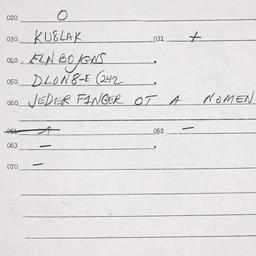 020 O
030 KUBLAK 031 +
040 ELNBOJGNS .
050 DLON8-E (242 .
060 JEDER FINGER OT A NOMEN
061 1 062 –
063 – .
070 –